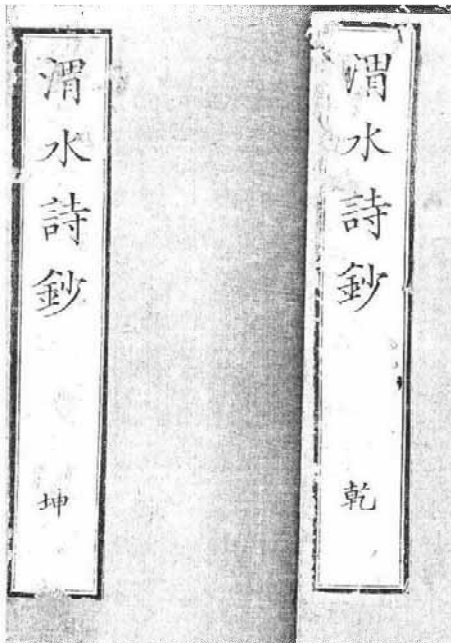 渭水詩鈔 乾
渭水詩鈔 坤